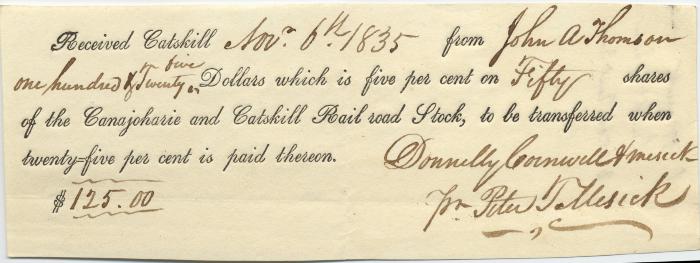 Received Catskill Novr. 6th. 1835 from John A Thomson
one hundred & Twenty five Dollars which is five per cent on Fifty shares
of the Canajoharie and Catskill Rail road Stock, to be transferred when
twenty=five per cent is paid thereon. Donnelly Cornwell & mesick
$ 125.00 pr Peter T Mesick